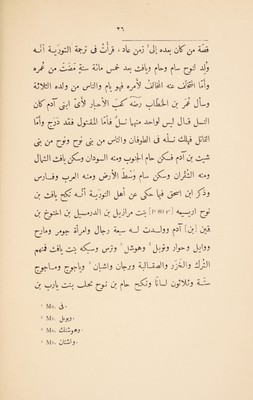 ٢٦
قصّة من كان بعده إلى زمن عاد، قرأتُ فى ترجمة التورية أنّه
وُلد لنوح سام وحام ويافث بعد خمس مائة سنةٍ مَضَتْ من عُمره
وأمّا المُخالف المخالفُ لأمره فهو يام والناس من ولده الثلاثة
وسأل عُمَر بن الخطّاب رضّه كعبَ الأحبار لأىّ ابنى آدم كان
النسل قال ليس لواحد منهما نسلٌ فأمّا المقتول فقد دَرَج وأمّا
القاتل فهلك نسلُه فى الطوفان والناس من بنى نوح ونوح من بنى
شيث بن آدم فسكن حام الجنوب ومنه السودان وسكن يافث الشمال
ومنه الشُقران وسكن سام وسَطَ الأرض ومنه العرب وفارس
وذكر ابن اسحق فيها حكى عن أهل التورية أنه نكح يافث بن
نوح اربسيه [f° 89 r°] بنت مرازيل بن الدرمسيل بن اخنوخ بن
قين [بن] آدم وولدت له سبعة رجال وامرأة جومر ومارح
ووايل وحوار وتوبل ² وهوشل ³ وترس وسبكه بنت يافث فمنهم
التُرك والخَزَر والصقالبة وبرجان واشبان ⁴ وياجوج وماجوج
ستّة وثلاثون لسانًا ونكح حام بن نوح نحلب بنت يارب بن
¹ Ms. فى.
² Ms. ويوبل.
³ Ms. وهوشنك.
⁴ Ms. واشتان.